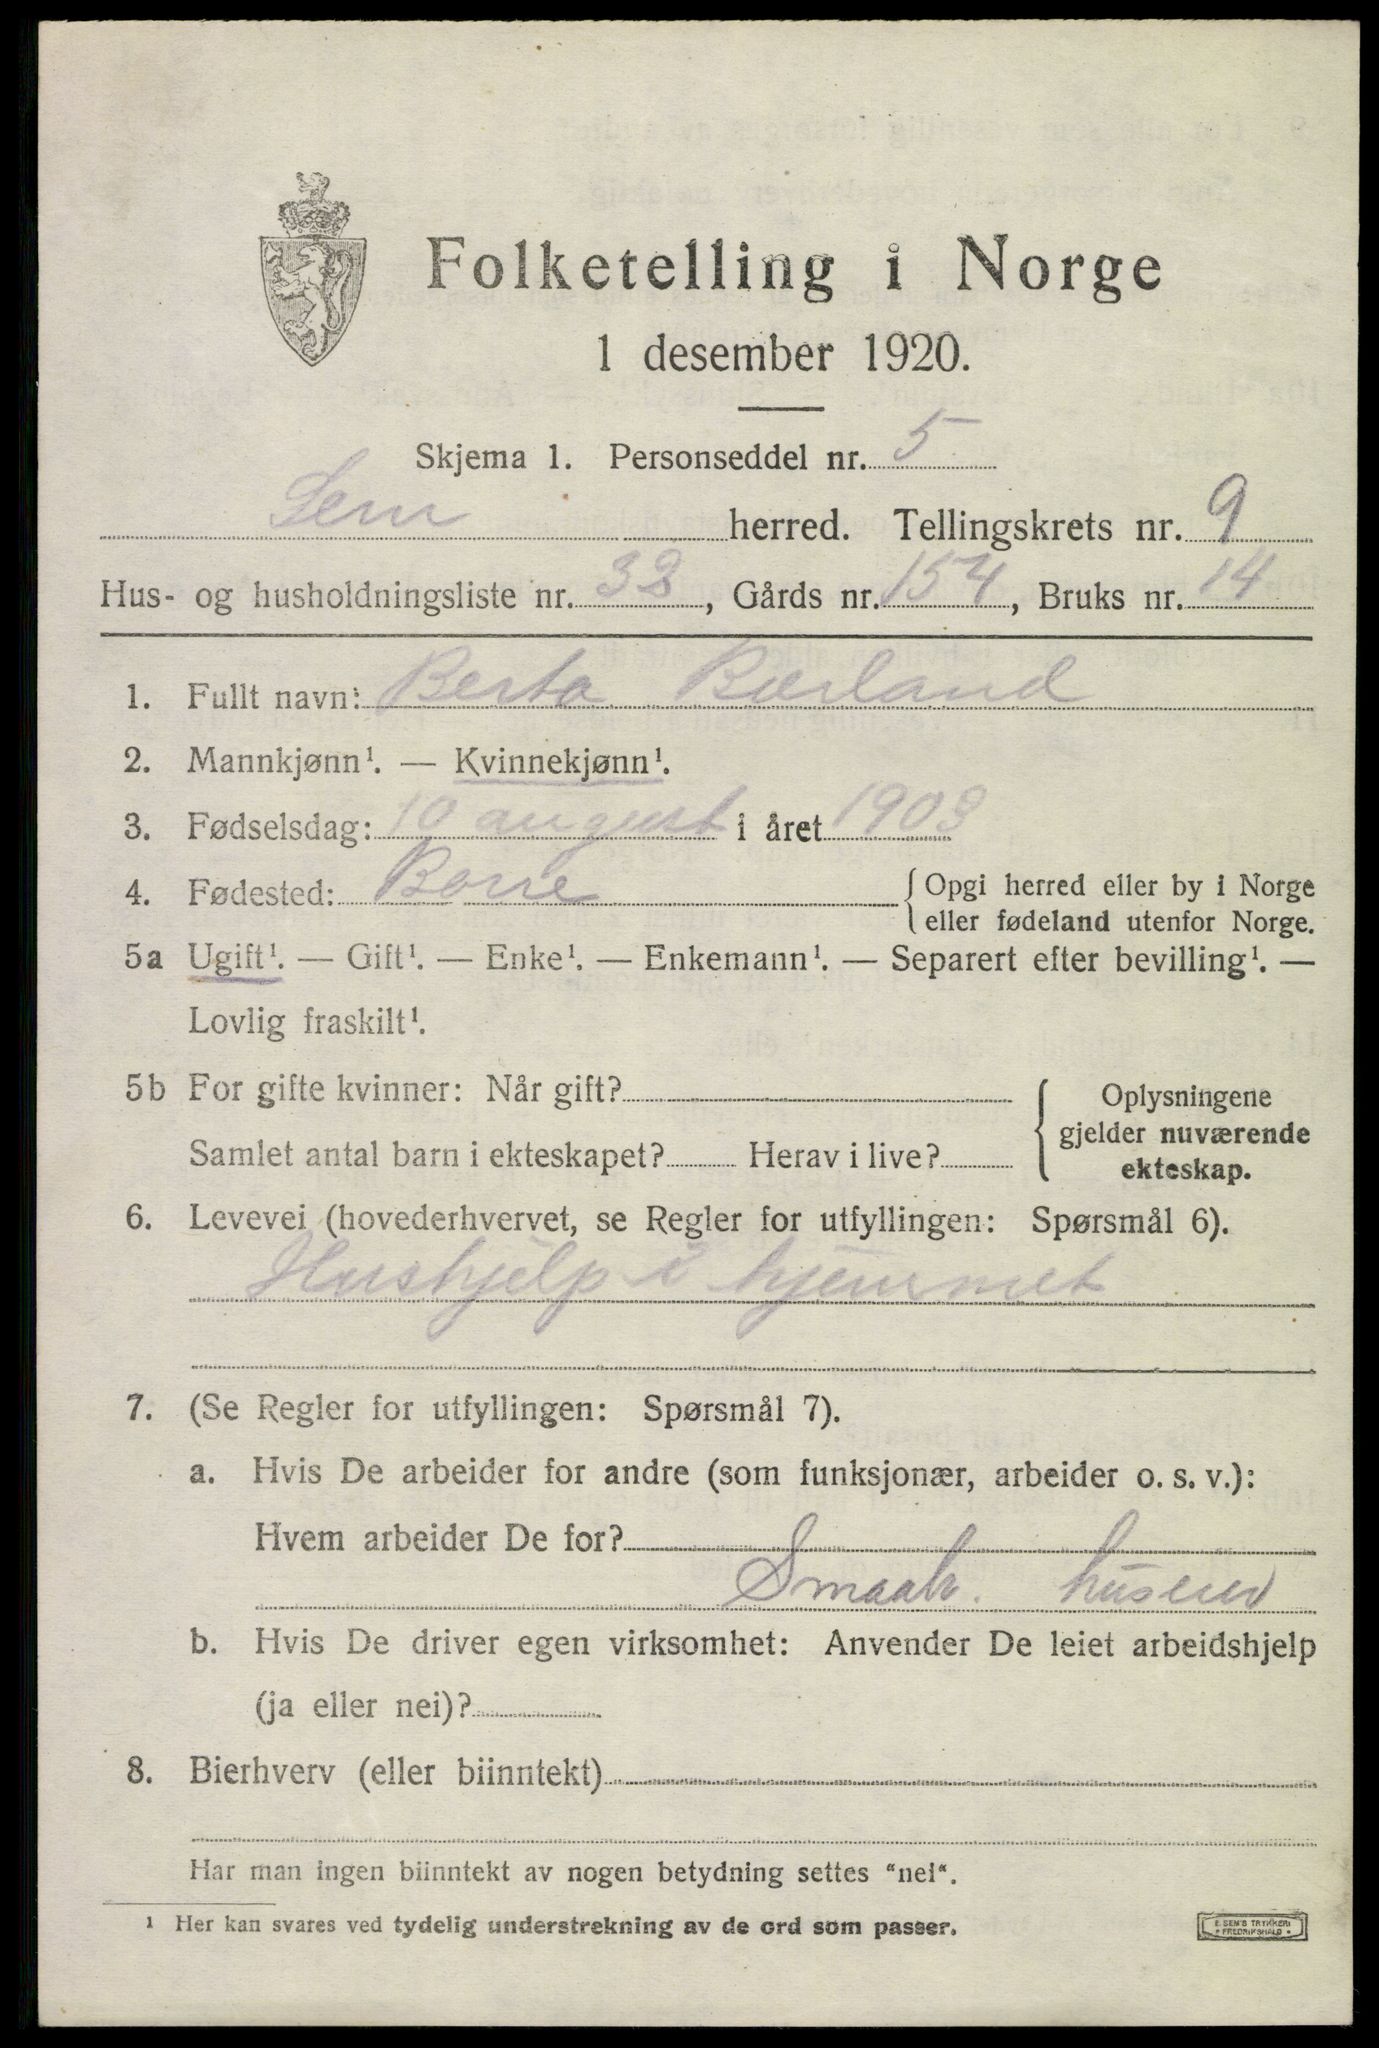 Folketelling i Norge
1 desember 1920.
Skjema 1. Personseddel nr. 5
Sem herred. Tellingskrets nr. 9
Hus- og husholdningsliste nr. 38, Gårds nr. 154, Bruks nr. 14
1. Fullt navn: Berta Bærland
2. Mannkjønn¹. — Kvinnekjønn¹.
3. Fødselsdag: 10 august i året 1903
4. Fødested: Borre {Opgi herred eller by i Norge
eller fødeland utenfor Norge.
5a Ugift¹. — Gift¹. — Enke¹. — Enkemann¹. — Separert efter bevilling¹. —
Lovlig fraskilt¹.
5b For gifte kvinner: Når gift?
Samlet antal barn i ekteskapet? Herav i live?
{ Oplysningene
gjelder nuværende
ekteskap.
6. Levevei (hovederhvervet, se Regler for utfyllingen: Spørsmål 6).
Hushjelp i hjemmet
7. (Se Regler for utfyllingen: Spørsmål 7).
a. Hvis De arbeider for andre (som funksjonær, arbeider o. s. v.):
Hvem arbeider De for?
Smaab.
b. Hvis De driver egen virksomhet: Anvender De leiet arbeidshjelp
(ja eller nei)?
8. Bierhverv (eller biinntekt)
Har man ingen biinntekt av nogen betydning settes "nei".
¹ Her kan svares ved tydelig understrekning av de ord som passer.
E. SEM'S TRYKKERI
• FREDRIKSHALD •